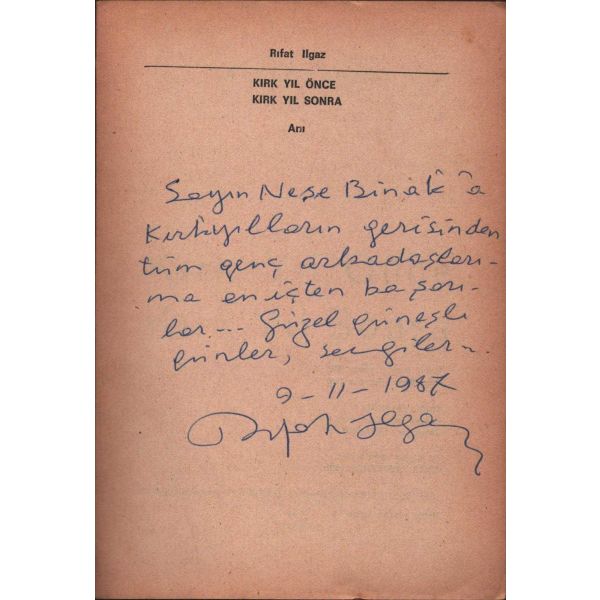 Rıfat Ilgaz
KIRK YIL ÖNCE
KIRK YIL SONRA
Anı
Sayın Neşe Binak'a
Kırkyılların gerisinden
tüm genç arkadaşları-
ma en içten başarı-
lar... Güzel güneşli
günler, sevgiler..
9-11-1987
Rıfat Ilgaz